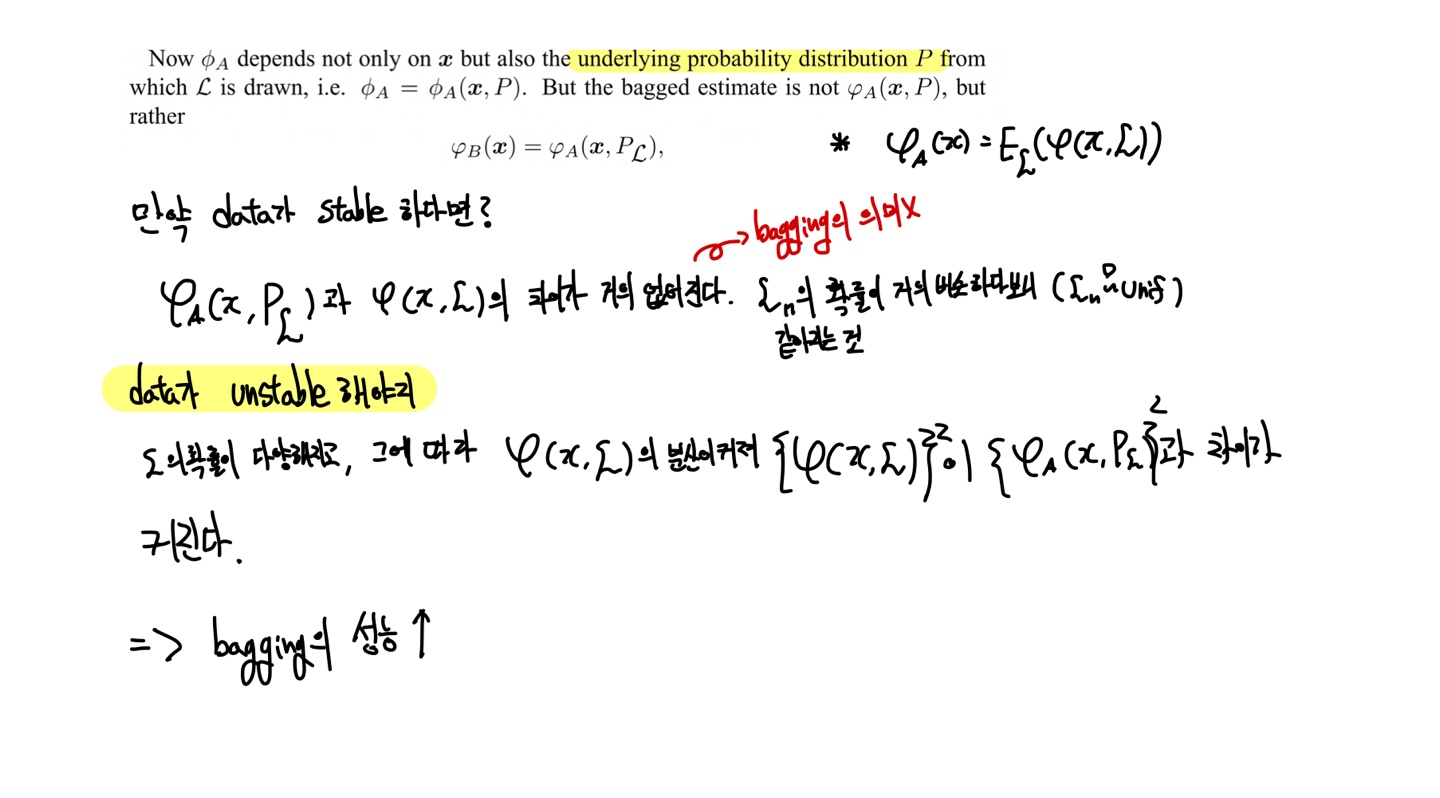 Now ϕ_A depends not only on x but also the underlying probability distribution P from
which ℒ is drawn, i.e. ϕ_A = ϕ_A(x, P). But the bagged estimate is not φ_A(x, P), but
rather
φ_B(x) = φ_A(x, P_ℒ),
* φ_A(x) = E_ℒ(φ(x, ℒ))
만약 data가 stable 하다면?
→ bagging의 의미X
φ_A(x, P_ℒ)과 φ(x, ℒ)의 차이가 거의 없어진다. ℒ_n의 확률이 거의 비슷하다보니 (ℒ_n ~ Unif)
같아지는 것
data가 unstable 해야지
ℒ의 확률이 다양해지고, 그에 따라 φ(x, ℒ)의 분산이 커져 {φ(x, ℒ)}²이 {φ_A(x, P_ℒ)}²과 차이가
커진다.
=> bagging의 성능 ↑